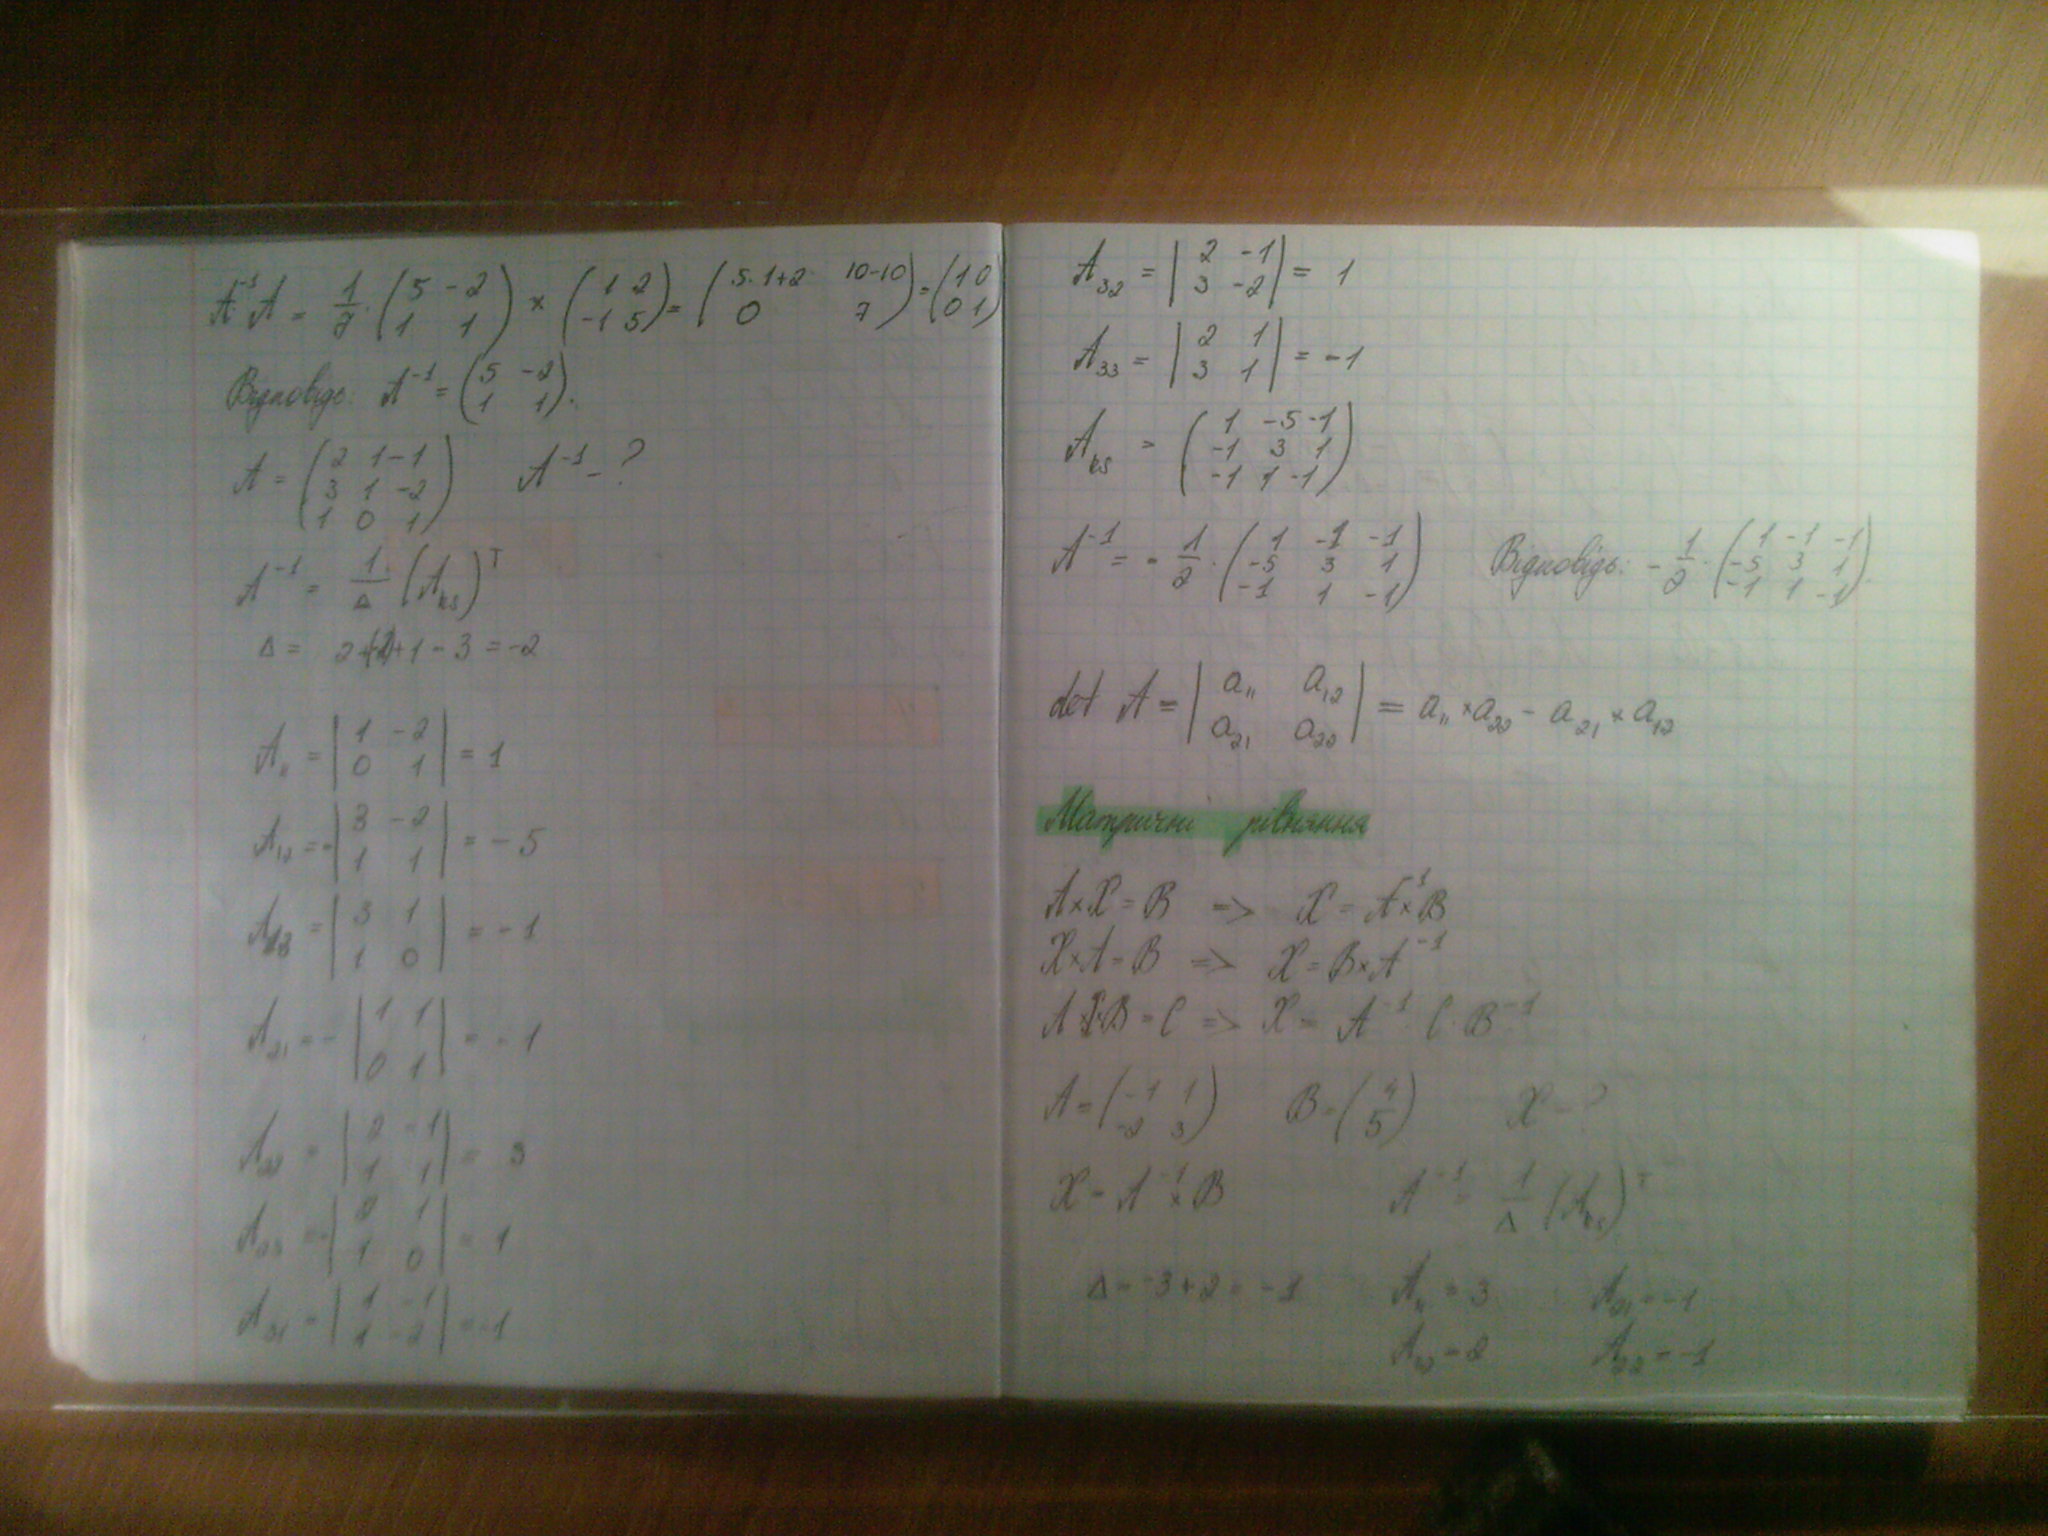 A⁻¹·A = 1/7 · (5 -2; 1 1) × (1 2; -1 5) = (5·1+2 10-10; 0 7) = (1 0; 0 1)
Відповідь: A⁻¹ = (5 -2; 1 1).
A = (2 1 -1; 3 1 -2; 1 0 1) A⁻¹ - ?
A⁻¹ = 1/Δ · (Aₖₛ)ᵀ
Δ = +1 - 3 = -2
A₁₁ = |1 -2; 0 1| = 1
A₁₂ = -|3 -2; 1 1| = -5
A₁₃ = |3 1; 1 0| = -1
A₂₁ = -|1 1; 0 1| = -1
A₂₂ = |2 -1; 1 1| = 3
A₂₃ = -|2 1; 1 0| = 1
A₃₁ = |1 -1; 1 -2| = -1
A₃₂ = |2 -1; 3 -2| = 1
A₃₃ = |2 1; 3 1| = -1
Aₖₛ = (1 -5 -1; -1 3 1; -1 1 -1)
A⁻¹ = - 1/2 · (1 -1 -1; -5 3 1; -1 1 -1) Відповідь: - 1/2 · (1 -1 -1; -5 3 1; -1 1 -1).
det A = |a₁₁ a₁₂; a₂₁ a₂₂| = a₁₁ × a₂₂ - a₂₁ × a₁₂
Матричні рівняння
A × X = B => X = A⁻¹ × B
X × A = B => X = B × A⁻¹
A·X·B = C => X = A⁻¹ · C · B⁻¹
A = (-1 1; -2 3) B = (4; 5) X - ?
X = A⁻¹ × B A⁻¹ = 1/Δ (Aₖₛ)ᵀ
Δ = -3 + 2 = -1 A₁₁ = 3 A₂₁ = -1
A₁₂ = 2 A₂₂ = -1